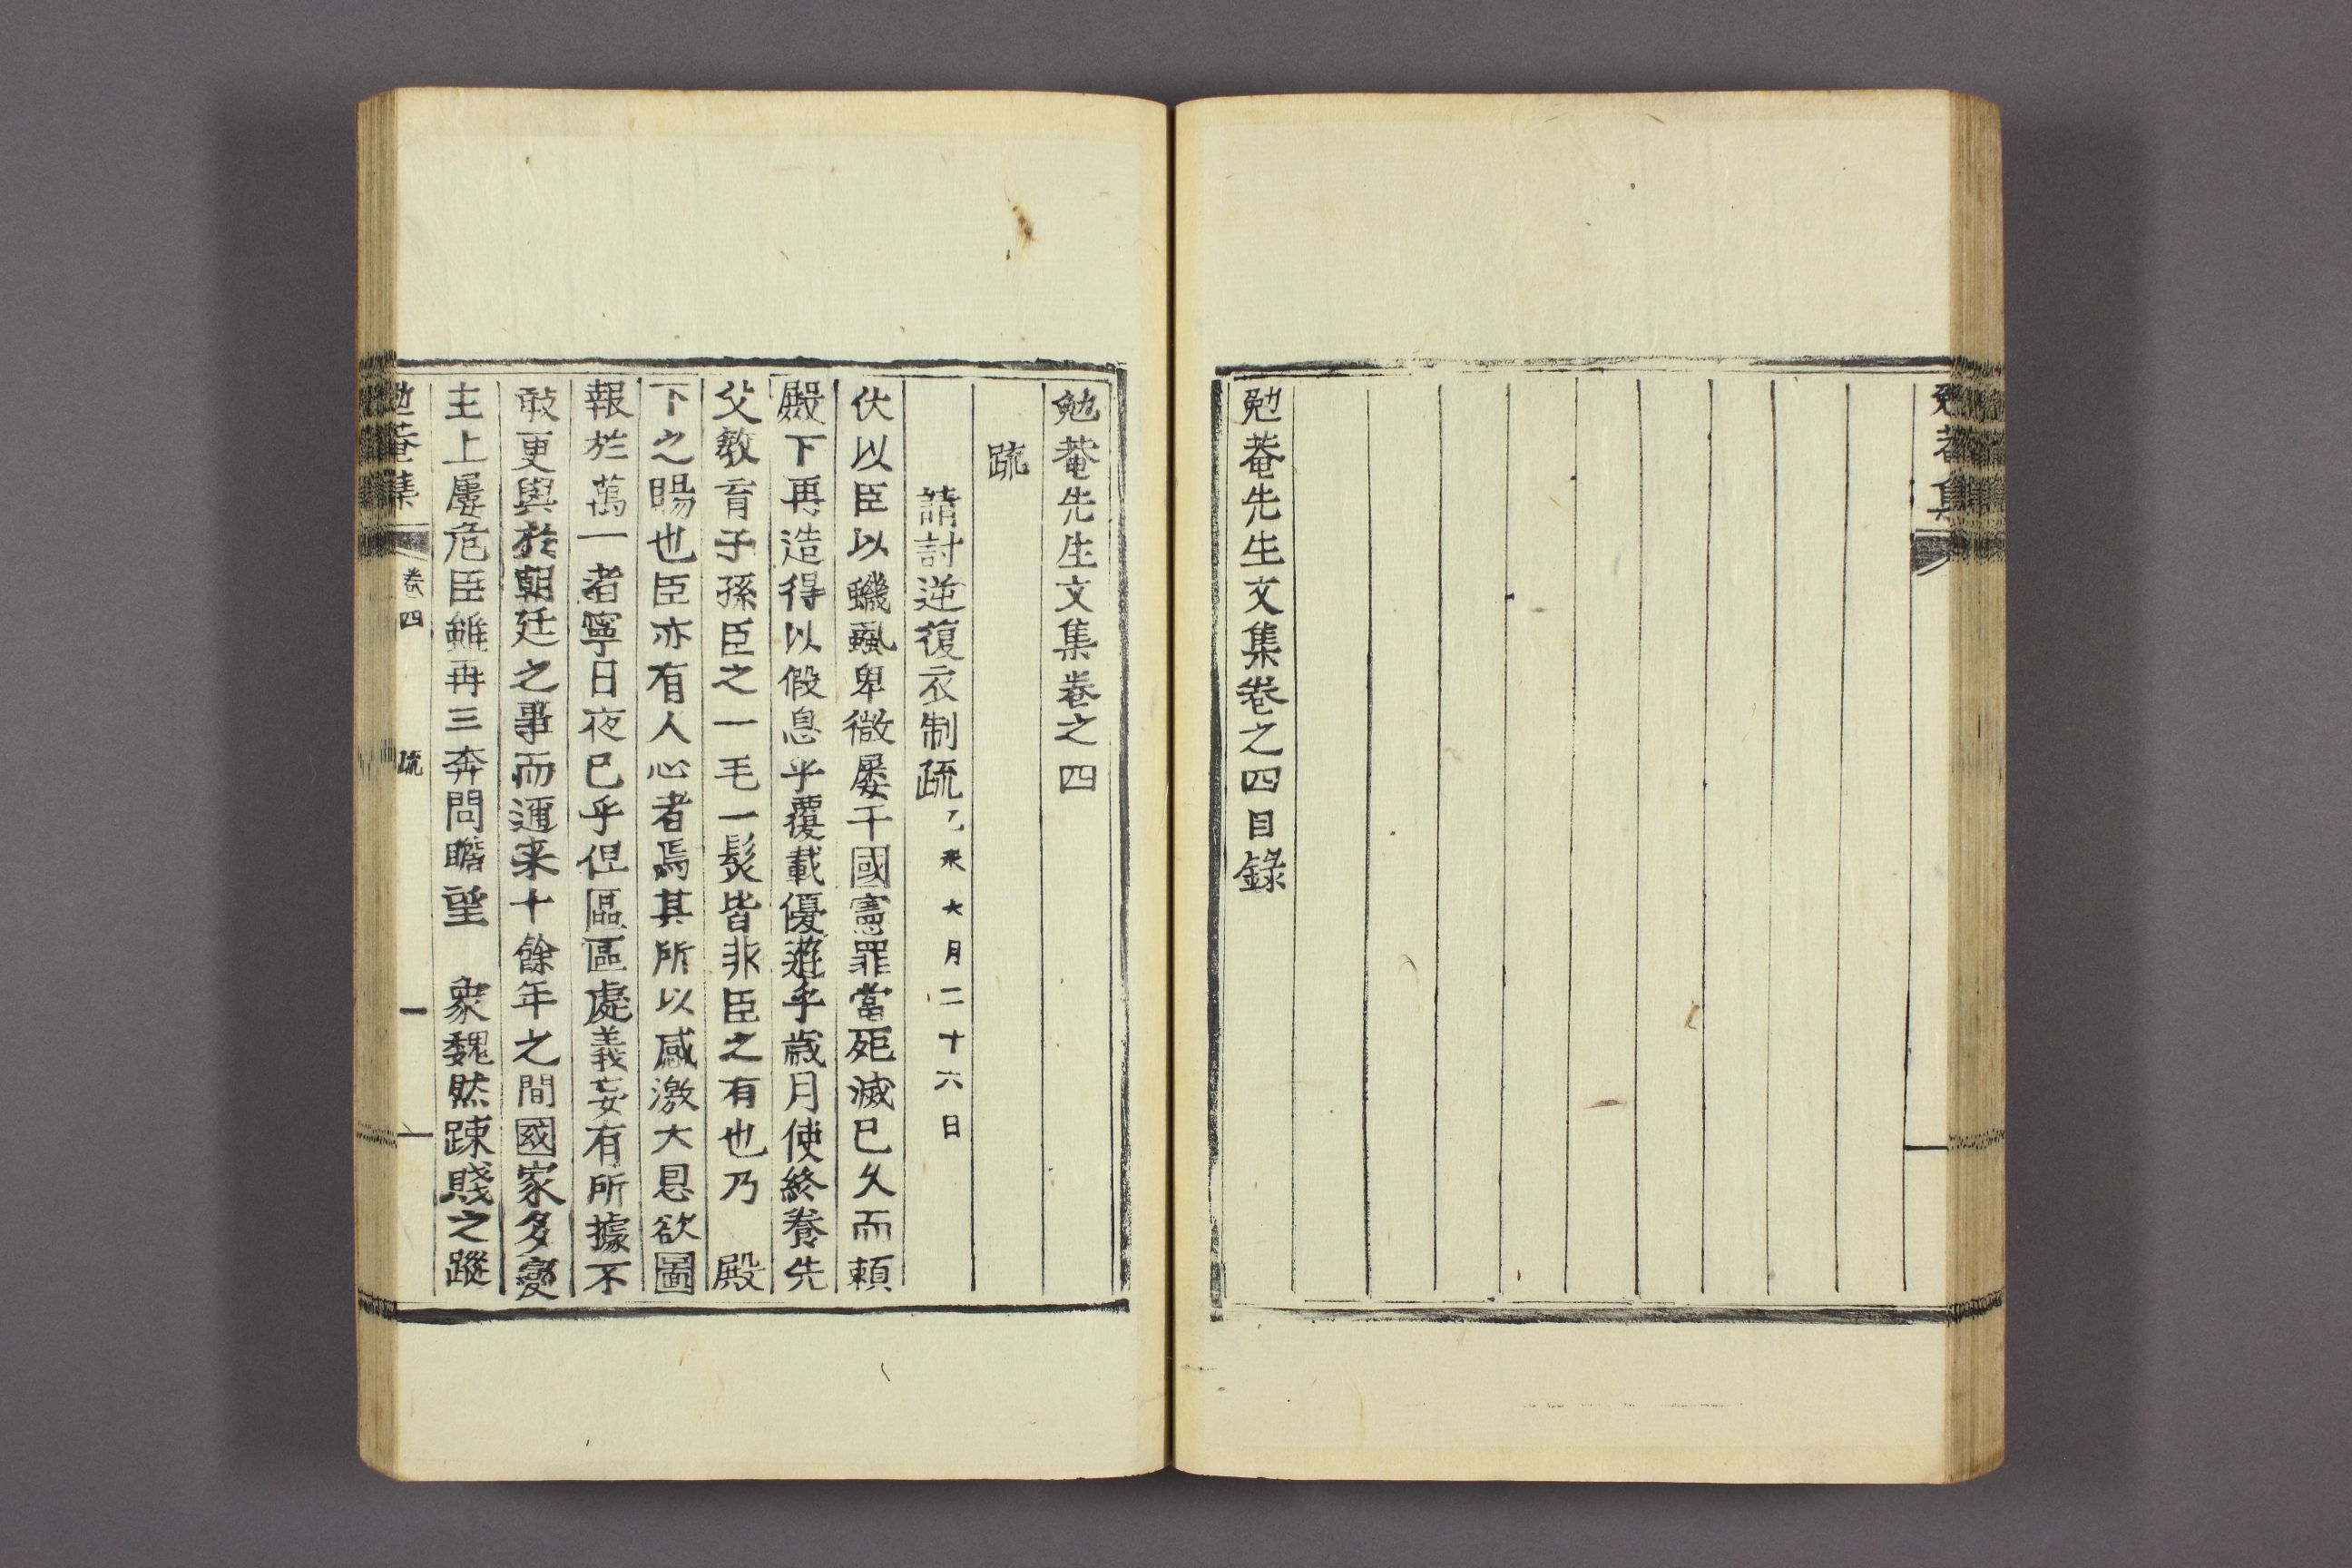 勉菴集
勉菴先生文集卷之四目錄
勉菴先生文集卷之四
疏
請討逆復衣制疏乙未六月二十六日
伏以臣以蟣蝨卑微屢干國憲罪當死滅已久而賴
殿下再造得以假息乎覆載優遊乎歲月使終養先
父敎育子孫臣之一毛一髮皆非臣之有也乃 殿
下之賜也臣亦有人心者焉其所以感激大恩欲圖
報於萬一者寧日夜已乎但區區處義妄有所據不
敢更與於朝廷之事而邇来十餘年之間國家多變
主上屢危臣雖再三奔問瞻望 象魏然踈賤之蹤
勉菴集 卷四 疏 一